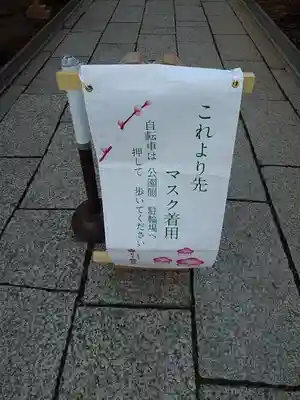 これより先
マスク着用
自転車は 公園側 駐輪場へ
押して 歩いてください